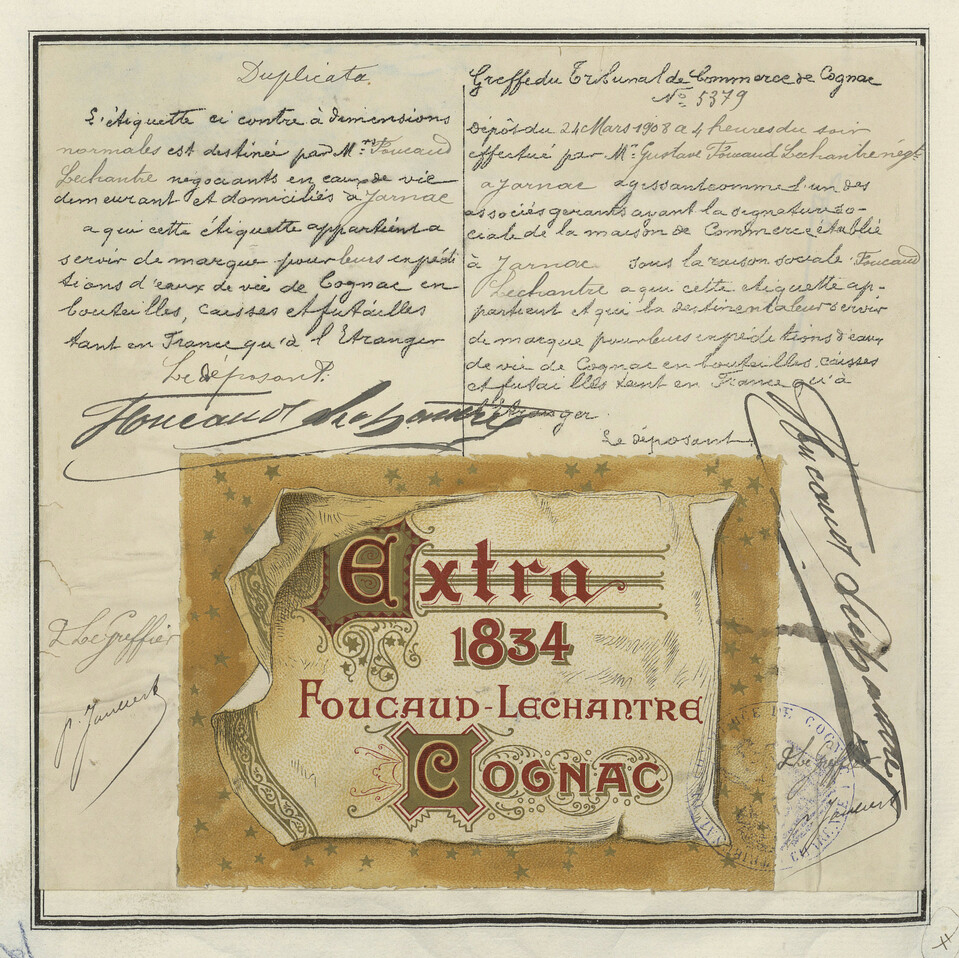 Duplicata
L'étiquette ci contre à dimensions
normales est destinée par Mrs Foucaud
Lechantre negociants en eaux de vie
demeurant et domiciliés à Jarnac
a qui cette étiquette appartient a
servir de marque pour leurs expédi
tions d'eaux de vie de Cognac en
bouteilles, caisses et futailles
tant en France qu'à l'Etranger
Le déposant.
Foucaud Lechantre
Greffe du Tribunal de Commerce de Cognac
No 5379
Dépôt du 24 Mars 1908 a 4 heures du soir
effectué par Mr Gustave Foucaud Lechantre négt
a Jarnac agissant comme l'un des
associés gerants ayant la signature so-
ciale de la maison de Commerce établie
à Jarnac sous la raison sociale Foucaud
Lechantre a qui cette etiquette ap-
partient et qui la destinent a leur servir
de marque pour leurs expéditions d'eaux
de vie de Cognac en bouteilles, caisses
et futailles tant en France qu'à
l'étranger.
Le déposant
Foucaud Lechantre
Extra
1834
Foucaud-Lechantre
Cognac
Le Greffier
Le Greffier